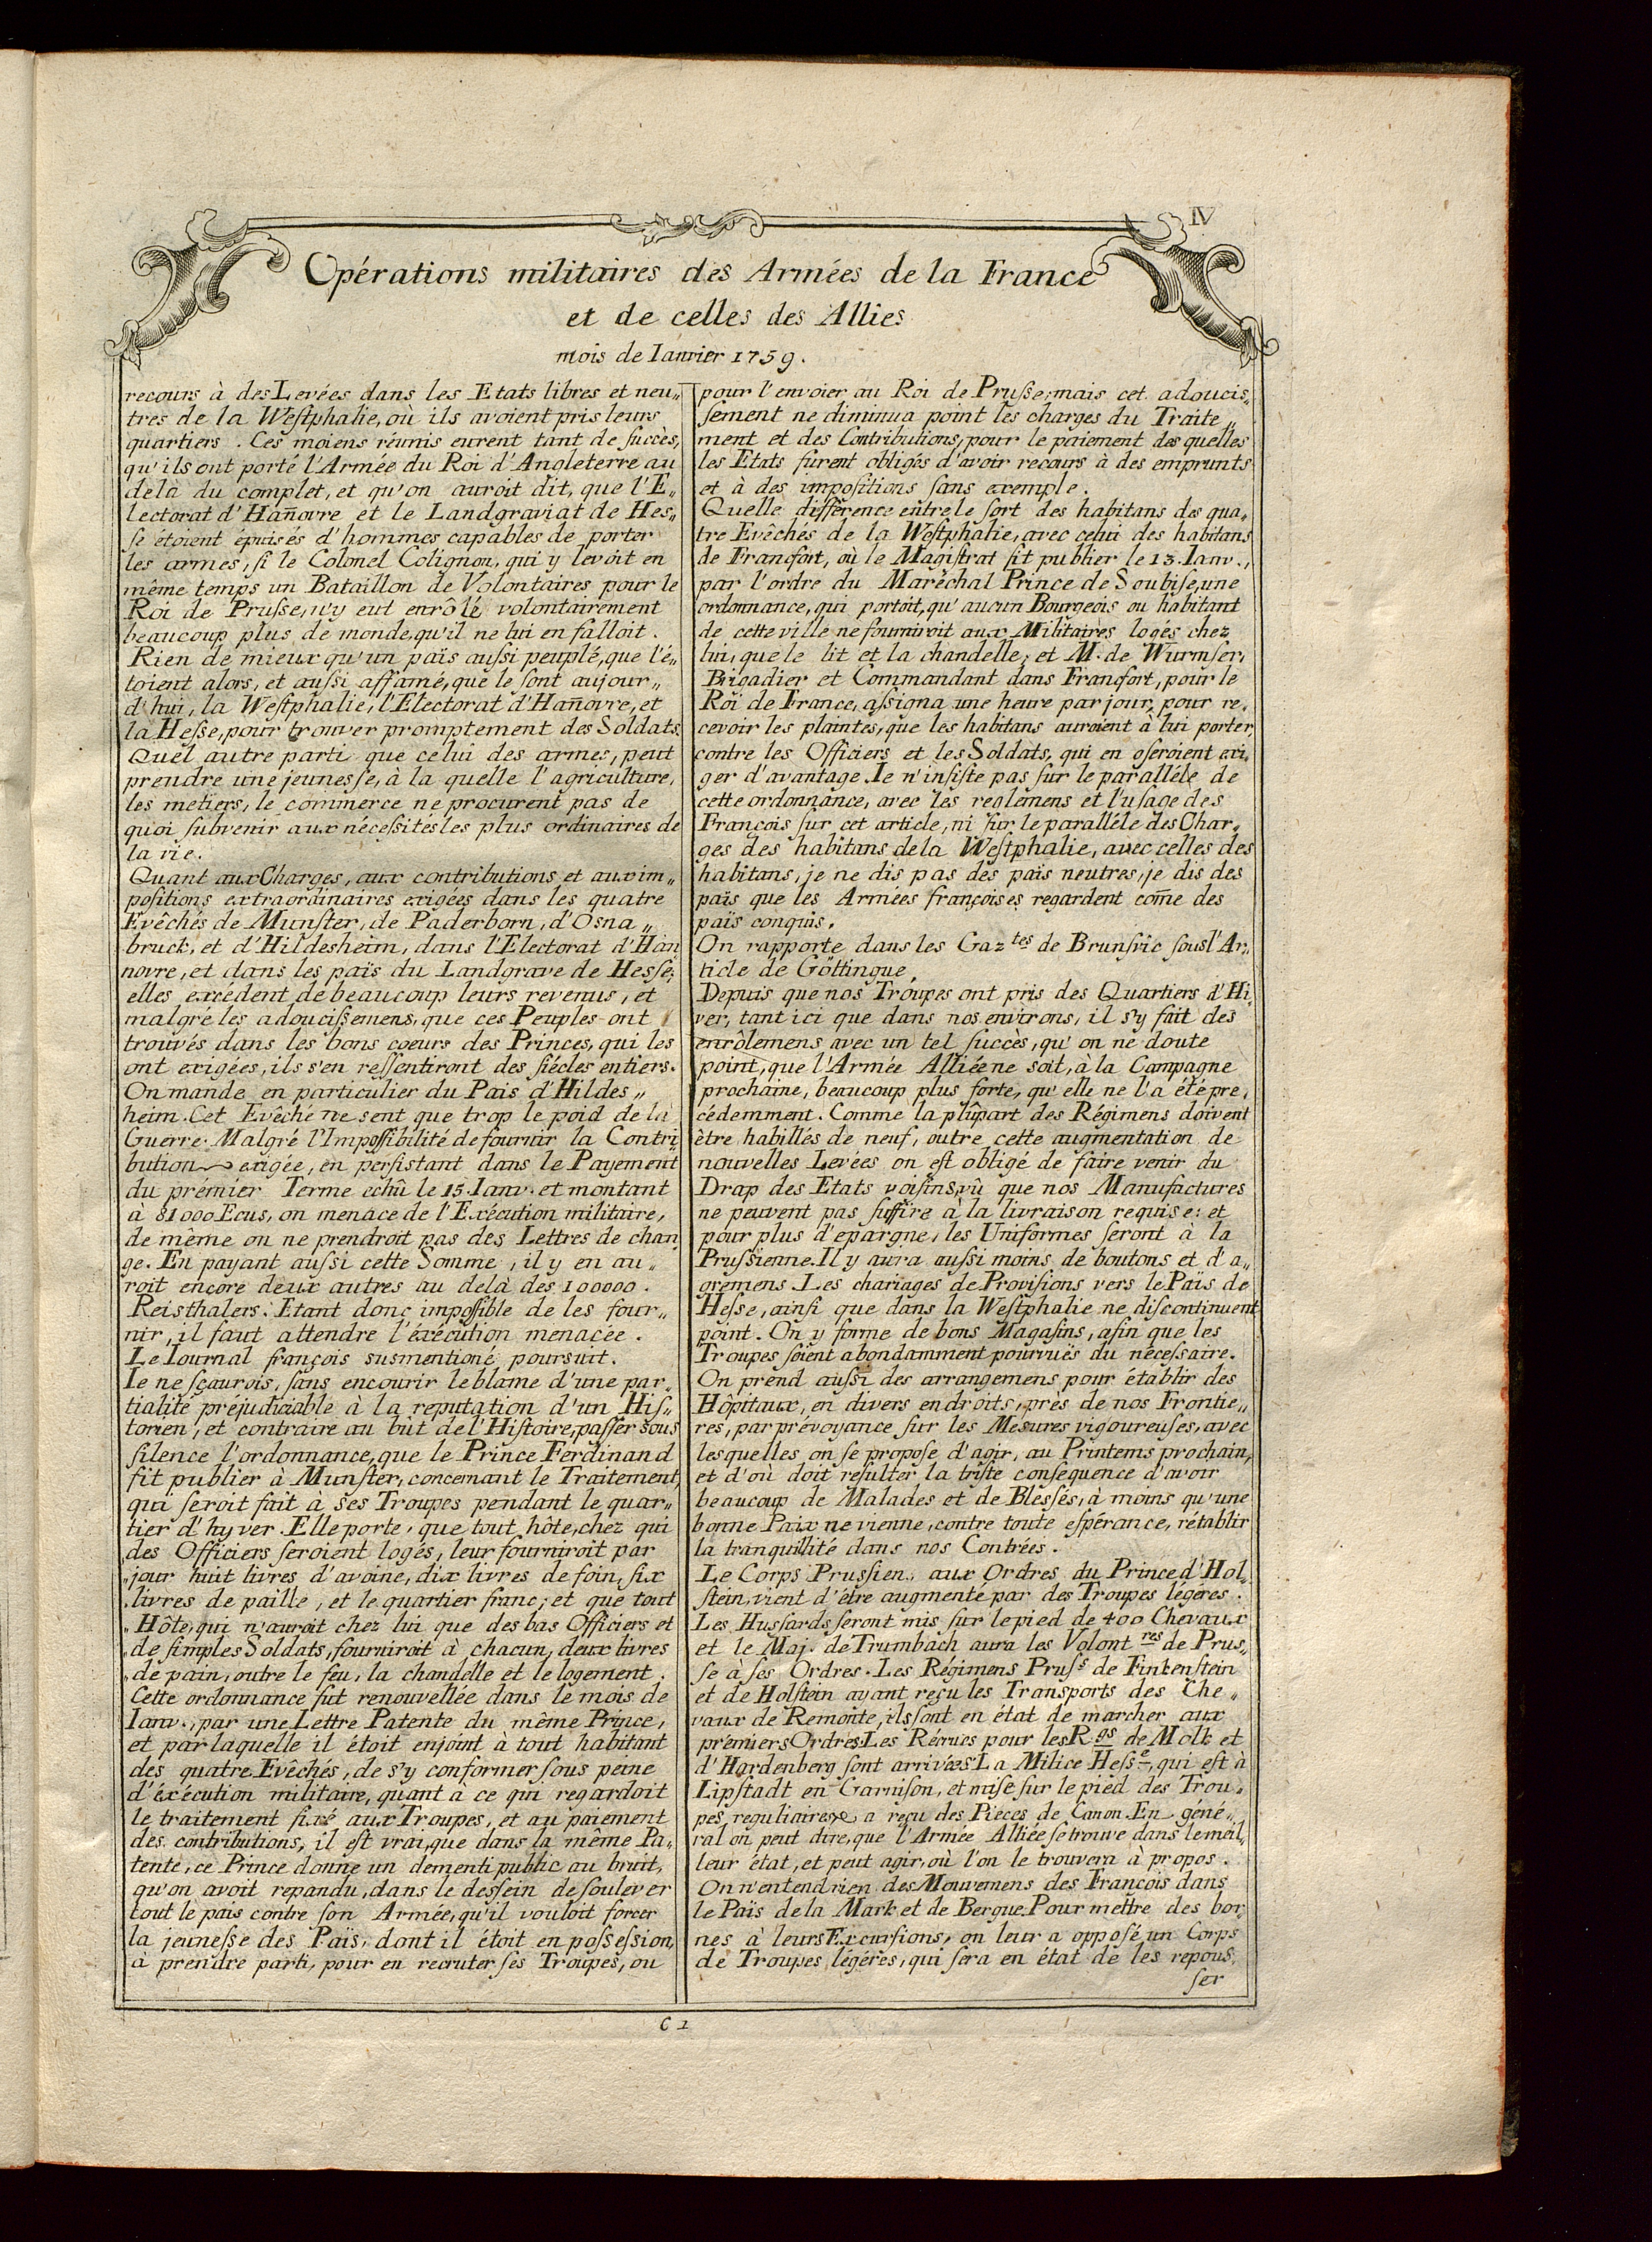 IV
Opérations militaires des Armées de la France
et de celles des Allies
mois de Ianvier 1759.
recours à des Levées dans les Etats libres et neu„
tres de la Weſtphalie, où ils avoient pris leurs
quartiers. Ces moiens réunis eurent tant de ſuccès,
qu'ils ont porté l'Armée du Roi d'Angleterre au
delà du complet, et qu'on auroit dit, que l'E„
lectorat d'Hañovre et le Landgraviat de Heſ„
ſe étoient épuisés d'hommes capables de porter
les armes, ſi le Colonel Colignon, qui y levoit en
même temps un Bataillon de Volontaires pour le
Roi de Pruſse, n'y eut enrôlé volontairement
beaucoup plus de monde, qu'il ne lui en falloit.
Rien de mieux qu'un païs auſsi peuplé, que l'é„
toient alors, et auſsi affamé, que le ſont aujour„
d'hui, la Weſtphalie, l'Electorat d'Hañovre, et
la Heſse, pour trouver promptement des Soldats.
Quel autre parti que celui des armes, peut
prendre une jeuneſse, à la quelle l'agriculture,
les metiers, le commerce ne procurent pas de
quoi ſubvenir aux nécessités les plus ordinaires de
la vie.
Quant aux Charges, aux contributions et aux im„
poſitions extraordinaires exigées dans les quatre
Evêchés de Munſter, de Paderborn, d'Osna„
bruck, et d'Hildesheim, dans l'Electorat d'Han
novre, et dans les païs du Landgrave de Heſse,
elles excédent de beaucoup leurs revenus, et
malgré les adouciſsemens, que ces Peuples ont
trouvés dans les bons coeurs des Princes, qui les
ont exigées, ils s'en reſsentiront des ſiécles entiers.
On mande en particulier du Païs d'Hildes„
heim. Cet Evêché ne sent que trop le poid de la
Guerre. Malgré l'Impoſſibilité de fournir la Contri
bution exigée, en perſistant dans le Payement
du prémier Terme echû le 15. Ianv. et montant
à 81000 Ecus, on menace de l'Exécution militaire,
de même on ne prendroit pas des Lettres de chan
ge. En payant auſsi cette Somme, il y en au„
roit encore deux autres au delà des 100000.
Reisthalers. Etant donc impoſſible de les four„
nir, il faut attendre l'éxécution menacée.
Le Iournal françois susmentioné poursuit.
Ie ne ſçaurois, ſans encourir le blâme d'une par„
tialité préjudiciable à la reputation d'un Hiſ„
torien, et contraire au bût de l'Hiſtoire, paſſer sous
ſilence l'ordonnance, que le Prince Ferdinand
fit publier à Munſter, concernant le Traitement,
qui ſeroit fait à ses Troupes pendant le quar„
tier d'hyver. Elle porte, que tout hôte, chez qui
„des Officiers ſeroient logés, leur fourniroit par
„jour huit livres d'avoine, dix livres de foin, ſix
„livres de paille, et le quartier franc; et que tout
„Hôte, qui n'auroit chez lui que des bas Officiers et
„de ſimples Soldats, fourniroit à chacun, deux livres
„de pain, outre le feu, la chandelle et le logement.
Cette ordonnance fut renouvellée dans le mois de
Ianv., par une Lettre Patente du même Prince,
et par laquelle il étoit enjoint à tout habitant
des quatre Evêchés, de s'y conformer sous peine
d'éxécution militaire, quant à ce qui regardoit
le traitement fixé aux Troupes, et au paiement
des contributions, il eſt vrai, que dans la même Pa„
tente, ce Prince donne un dementi public au bruit,
qu'on avoit repandu, dans le deſsein de soulever
tout le païs contre ſon Armée, qu'il vouloit forcer
la jeuneſse des Païs, dont il étoit en poſseſsion,
à prendre parti, pour en recruter ſes Troupes, ou
pour l'envoier au Roi de Pruſse; mais cet adoucis„
ſement ne diminua point les charges du Traite„
ment et des Contributions, pour le paiement des quelles
les Etats fûrent obligés d'avoir recours à des emprunts
et à des impoſitions ſans exemple.
Quelle différence entre le ſort des habitans des qua„
tre Evêchés de la Weſtphalie, avec celui des habitans
de Francfort, où le Magiſtrat fit publier le 13. Ianv.,
par l'ordre du Maréchal Prince de Soubiſe, une
ordonnance, qui portoit, qu'aucun Bourgeois ou habitant
de cette ville ne fourniroit aux Militaires logés chez
lui, que le lit et la chandelle; et M. de Wurmſer,
Brigadier et Commandant dans Francfort, pour le
Roi de France, aſsigna une heure par jour, pour re„
cevoir les plaintes, que les habitans auroient à lui porter,
contre les Officiers et les Soldats, qui en oſeroient exi„
ger d'avantage. Ie n'inſiſte pas ſur le paralléle de
cette ordonnance, avec les reglemens et l'uſage des
François ſur cet article, ni ſur le paralléle des Char„
ges des habitans de la Weſtphalie, avec celles des
habitans, je ne dis pas des païs neutres, je dis des
païs que les Armées françoises regardent com̄e des
païs conquis.
On rapporte dans les Gaz.tes de Brunſvic sous l'Ar„
ticle de Göttingue,
Depuis que nos Troupes ont pris des Quartiers d'Hi„
ver, tant ici que dans nos environs, il s'y fait des
enrôlemens avec un tel ſuccès, qu'on ne doute
point, que l'Armée Alliée ne soit, à la Campagne
prochaine, beaucoup plus forte, qu'elle ne l'a été pre„
cédemment. Comme la plûpart des Régimens doivent
être habillés de neuf, outre cette augmentation de
nouvelles Levées on eſt obligé de faire venir du
Drap des Etats voiſins, vû que nos Manufactures
ne peuvent pas ſuffire à la livraison requise: et
pour plus d'epargne, les Uniformes ſeront à la
Pruſsienne. Il y aura auſsi moins de boutons et d'a„
grémens. Les chariages de Proviſions vers le Païs de
Heſse, ainſi que dans la Weſtphalie ne diſcontinuent
point. On y forme de bons Magaſins, afin que les
Troupes ſoient abondamment pourvuës du néceſsaire.
On prend auſsi des arrangemens pour établir des
Hôpitaux, en divers endroits, près de nos Frontie„
res, par prévoyance ſur les Meſures vigoureuſes, avec
lesquelles on ſe propoſe d'agir, au Printems prochain,
et d'où doit reſulter la triſte conſéquence d'avoir
beaucoup de Malades et de Bleſsés, à moins qu'une
bonne Paix ne vienne, contre toute eſpérance, rétablir
la tranquillité dans nos Contrées.
Le Corps Pruſsien, aux Ordres du Prince d'Hol„
ſtein, vient d'être augmenté par des Troupes légéres.
Les Huſsards ſeront mis ſur le pied de 400 Chevaux
et le Maj. de Trumbach aura les Volont.res de Pruſ„
ſe à ſes Ordres. Les Régimens Pruſs de Finkenſtein
et de Holſtein ayant reçu les Transports des Che„
vaux de Remonte, ils ſont en état de marcher aux
prémiers Ordres. Les Récrues pour les R.gs de Molk et
d'Hardenberg ſont arrivées. La Milice Heſs.e, qui eſt à
Lipſtadt en Garnison, et mise ſur le pied des Trou„
pes reguliaires, a reçu des Pieces de Canon. En géné„
ral on peut dire, que l'Armée Alliée ſe trouve dans le meil„
leur état, et peut agir, où l'on le trouvera à propos.
On n'entend rien des Mouvemens des François dans
le Païs de la Mark et de Bergue. Pour mettre des bor„
nes à leurs Excurſions, on leur a oppoſé un Corps
de Troupes légéres, qui ſera en état de les repouſ„
ſer
C 1